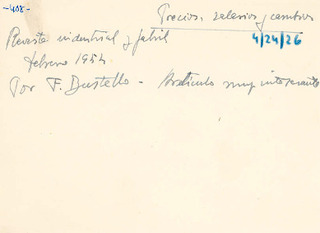 -408-
Precios, salarios y cambios
4/24/26
Revista industrial y fabril
febrero 1954
Por F. Bustelo - Artículo muy interesante